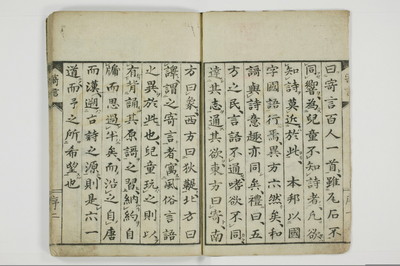 曰寄言百人一首、雖瓦石不
同響、為兒童不知詩者、凡欲
知詩、莫近於此、本邦以國
字國語行焉、異方六然矣、和
語與詩意趣亦同矣、禮曰五
方之民言語不通、嗜欲不同、
達其志、通其欲、東方曰寄、南
方曰象、西方曰狄鞮、北方曰
譯、謂之寄言者、寓風俗言語
之異於此也、兒童玩之則以
有背誦其原謌之習、納約自
牖而思過半矣、而沿之自唐
而漢、遡古詩之源、則是六一
道、而予之所希望也
序二